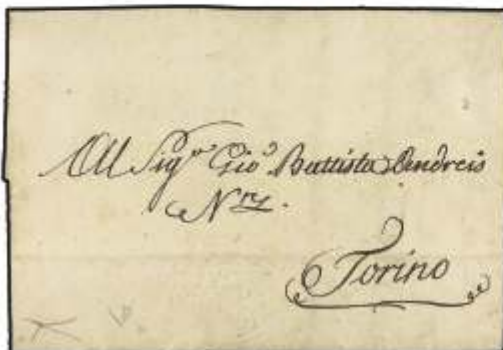 All Sig.r Gio. Battista Andreis
Torino